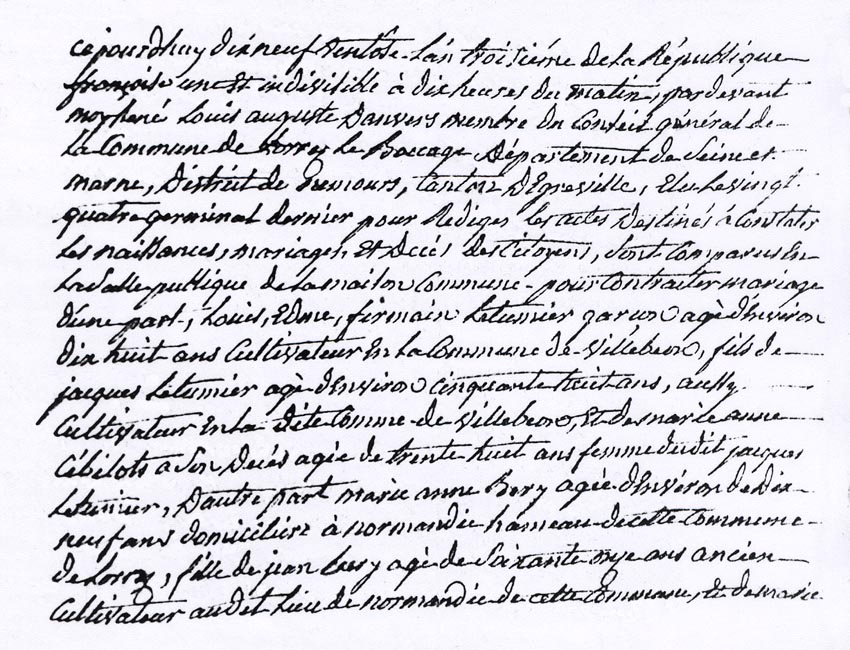 cejourdhuy dixneuf Ventôse l'an troisiéme de la République
françoise une Et indivisible à dix heures du matin, pardevant
moy René Louis auguste Danvers membre du Conseil général de
la Commune de Lorrez le Boccage Département de Seine et
marne, District de Nemours, Canton D'Egreville, Elu le vingt
quatre germinal dernier pour Rediger les actes Destinés à Constater
les naissances, mariages, Et Décés des Citoyens, sont Comparus En
la salle publique de la maison Commune pour Contracter mariage
d'une part, Louis, Edme, firmain Letumier garcon agé d'Environ
dix huit ans Cultivateur En la Commune de Villebeon, fils de
jacques Letumier agé d'Environ cinquante huit ans, aussy
Cultivateur En la dite Comme de Villebeon, Et de marie anne
Cébilots a Son Decés agée de trente huit ans femme dudit jacques
Letumier, D'autre part marie anne Bery agée d'Environ de Dix
neuf ans domiciliée à normandie hameau de cette Commune
de Lorrez, fille de jean Bery agé de Soixante onze ans ancien
Cultivateur audit Lieu de normandie de cette Commune, et de marie